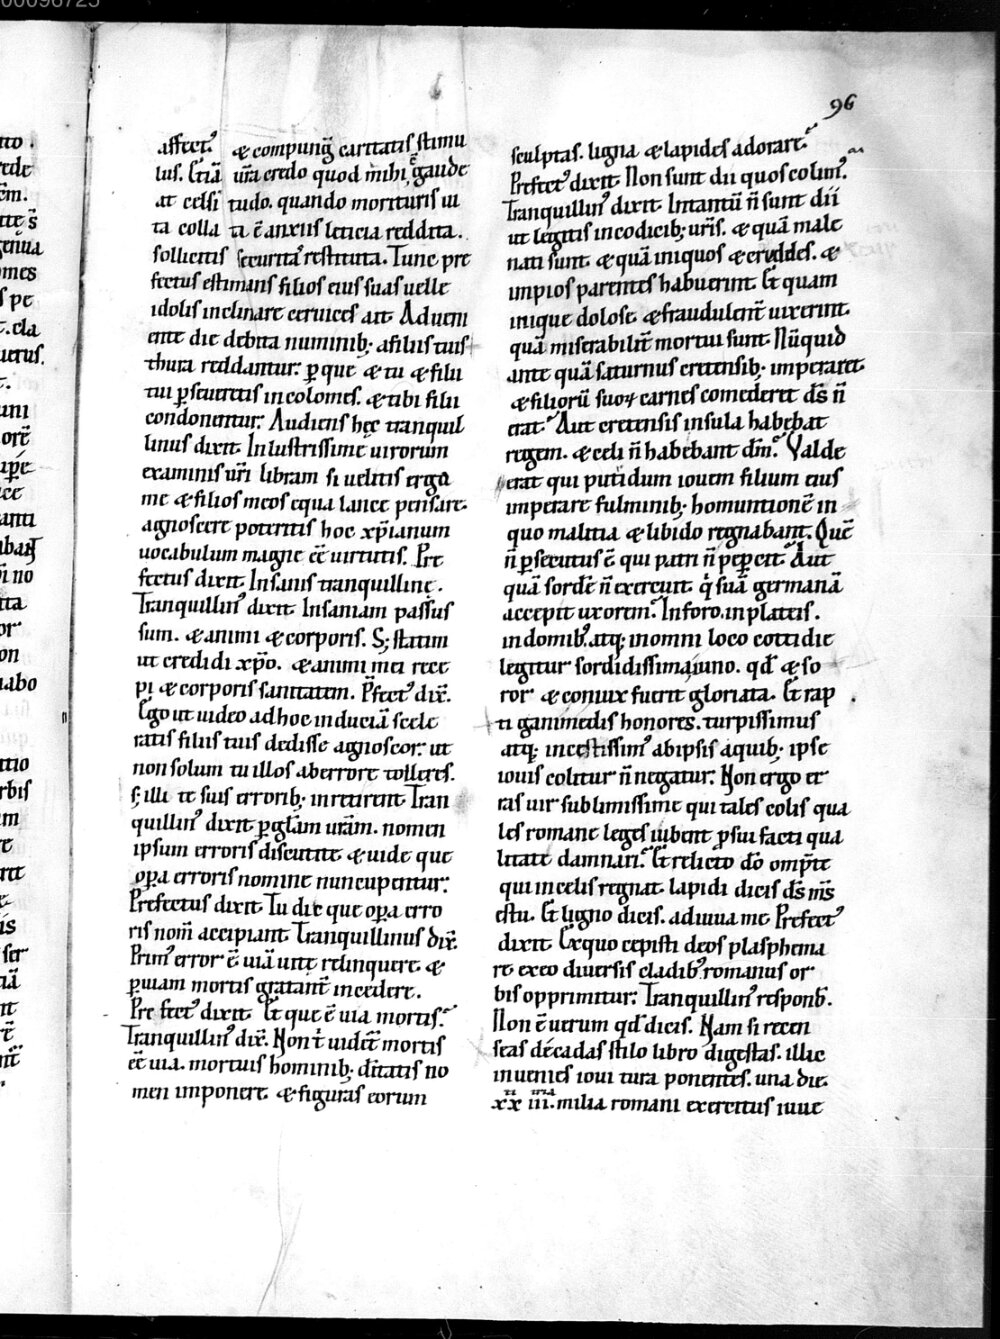 96
affect᷒ & compunq̄ caritatis stimu
lus. Etiā ur̄a credo quod mihi gaude
at celsi tudo. quando morituris ui
ta colla ta ē anxiis leticia reddita.
sollicitis securitas restituta. Tunc pre
fectus estimans filios eius suas uelle
idolis inclinare ceruices ait. Adueni
ente die debita numinib; a filiis tuis
thura reddantur. per que & tu & filii
tui perseueretis incolomes. & tibi filii
condonentur. Audiens hęc tranquil
linus dixit. Inlustrissime uirorum
examinis ur̄i libram si uelitis erga
me & filios meos equa lance pensare.
agnoscere poteritis hoc xp̄ianum
uocabulum magnę eē uirtutis. Pre
fectus dixit. Insanis tranquilline.
Tranquillin᷒ dixit. Insaniam passus
sum. & animi & corporis. S; statim
ut credidi xp̄o. & animi mei rece
pi & corporis sanitatem. P̄fect᷒ dix̄.
Ego ut uideo ad hoc induciā scele
ratis filiis tuis dedisse agnoscor. ut
non solum tu illos ab errore tolleres.
s; illi te suis errorib; inretirent. Tran
quillin᷒ dixit. per glām uram. nomen
ipsum erroris discutite. & uide que
opera erroris nomine nuncupentur.
Prefectus dixit. Tu dic que opera erro
ris nom̄ accipiant. Tranquillinus dix̄.
Prim᷒ error ē uiā uite relinquere. &
per uiam mortis gratant̄ incedere.
Prefect᷒ dixit. Et que ē uia mortis.
Tranquillin᷒ dix̄. Non t̄ uidet̄ mortis
eē uia. mortuis hominib; d̄itatis no
men imponere. & figuras eorum
sculptas. ligna & lapides adorare.
Prefect᷒ dixit. Non sunt dii quos colim᷒.
Tranquillin᷒ dixit. Intantū n̄ sunt dii
ut legitis in codicib; ur̄is. & quā male
nati sunt. & quā iniquos & crudeles. &
impios parentes habuerint. Et quam
inique dolose. & fraudulent̄ uixerint.
quā miserabilit̄ mortui sunt. Nūquid
ante quā saturnus cretensib; imperaret.
& filiorū suoꝝ carnes comederet. ds̄ n̄
erat. Aut cretensis insula habebat
regem. & celi n̄ habebant dm̄. Valde
erat qui putidum iouem filium eius
imperare fulminib; homuntionē in
quo malitia & libido regnabant. Quē
n̄ persecutus ē qui patri n̄ pepercit. Aut
quā sordē n̄ exercuit. q̇ suā germanā
accepit uxorem. In foro. in plateis.
in domib᷒. atq; in omni loco cottidie
legitur sordidissima iuno. qd̄ & so
ror & coniux fuerit gloriata. Et rap
ti ganimedis honores. turpissimus
atq; incestissim᷒ ab ipsis a quib; ipse
iouis colitur n̄ negatur. Non ergo er
ras uir sublimissime qui tales colis qua
les romane leges iubent pro sui facti qua
litate damnari. Et relicto dō omp̄te
qui in celis regnat. lapidi dicis ds̄ ms̄
es tu. Et ligno dicis. adiuua me. Prefect᷒
dixit. Ex quo cepisti deos plasphema
re. ex eo diuersis cladib᷒ romanus or
bis opprimitur. Tranquillin᷒ respon̄.
Non ē uerum qd̄ dicis. Nam si recen
seas decadas stilo libro digestas. illic
inuenies ioui tura ponentes. una die.
xx iii. milia romani exercitus iuue